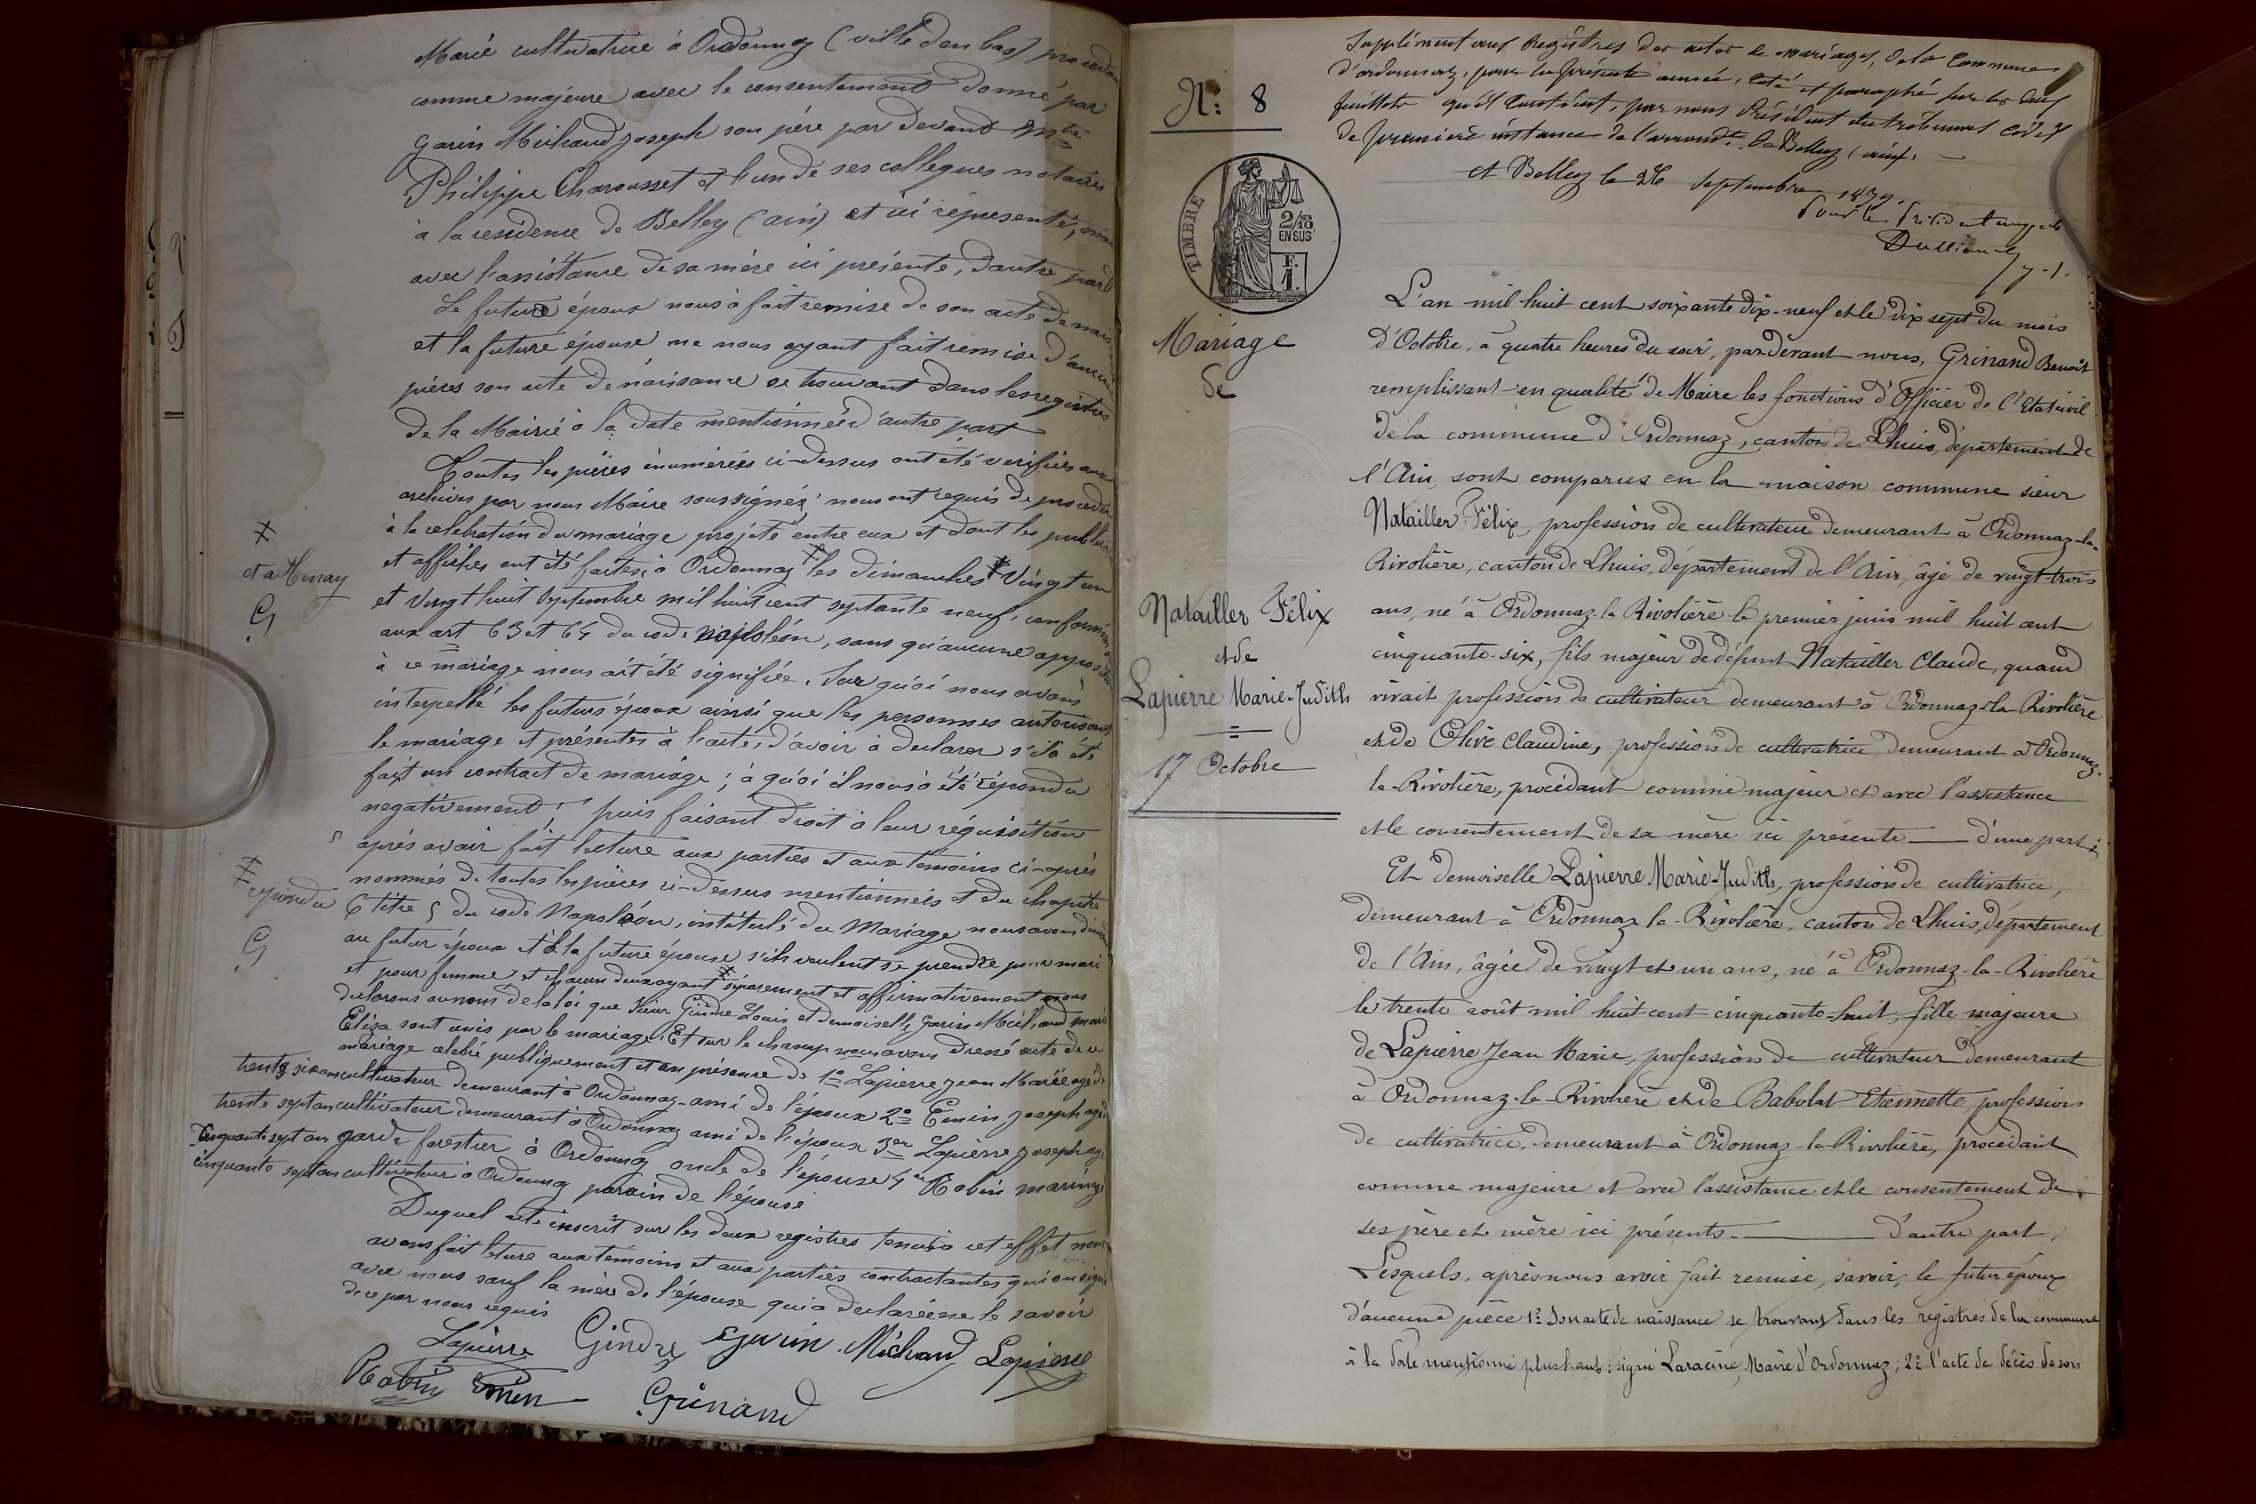 Marie cultivatrice à Ordonnaz (ville d'en bas) procedant
comme majeure avec le consentement donné par
Garin Michaud Joseph son père par devant Mtre
Philippe Charousset et l'un de ses collegues notaires
à la residence de Belley (ain) et ici representé,
avec l'assistance de sa mère ici présente, d'autre part
Le future époux nous à fait remise de son acte de nais
et la future épouse ne nous ayant fait remise d'aucune
pièces son acte de naissance se trouvant dans les registres
de la Mairie à la date mentionnée d'autre part
Toutes les pièces énumérées ci-dessus ont été verifiées aux
archives par nous Maire soussigné; nous ont requis de proceder
à la celebration du mariage projeté entre eux et dont les public
et affiches ont été faites à Ordonnaz ‡ les dimanches Vingt un
et Vingt huit Septembre mil huit cent septante neuf, conformé
aux art 63 et 64 du code Napoléon, sans qu'aucune opposition
à ce mariage nous ait été signifiée. Sur quoi nous avons
interpellé les futurs époux ainsi que les personnes autorisant
le mariage et présentes à l'acte, d'avoir à declarer s'il à été
fait un contract de mariage; à quoi il nous à été répondu
negativement; puis faisant droit à leur réquisition
après avoir fait lecture aux parties et aux temoins ci-après
nommés de toutes les pièces ci-dessus mentionnées et du chapitre
6 titre 5 du code Napoléon, institulé du Mariage nous avons demandé
au futur époux et à la future épouse s'ils veulent se prendre pour mari
et pour femme et chacun deux ayant ‡ séparement et affirmativement nous
declarons au nom de la loi que Sieur Gindre Louis et demoiselle Garin Michaud Marie
Eliza sont unis par le mariage. Et sur le champ nous avons dressé acte de ce
mariage celebré publiquement et en présence de 1° Lapierre Jean Marie agé de
trente six ans cultivateur demeurant à Ordonnaz ami de l'époux 2° Emin Joseph agé de
trente sept ans cultivateur demeurant à Ordonnaz ami de l'époux 3° Lapierre Joseph agé
Cinquante sept ans garde forestier à Ordonnaz oncle de l'épouse 4° Robin marin agé
cinquante sept ans cultivateur à Ordonnaz parain de l'épouse
Duquel acte inscrit sur les deux registres tenus à cet effet nous
avons fait lecture aux temoins et aux parties contractantes qui ont signé
avec nous sauf la mère de l'épouse qui a declaré ne le savoir
de ce par nous requis
Lapierre Gindre Garin Michaud Lapierre
Robin Emin Grinand
‡
et a
G
‡
repondu
G
N: 8
Supplément aux Registres des actes de mariages, de la Commune
d'ordonnaz, pour la présente année, coté et paraphé sur les deux
feuillets qu'il contient, par nous Président du tribunal Civil
de premiere instance de l'arrondt. de Belley (ain).
et Belley le 26 Septembre 1879.
Pour le Président empêché
TIMBRE
2/10
EN SUS
F.
1.
Mariage
de
Natailler Félix
et de
Lapierre Marie-Judith
17 Octobre
L'an mil huit cent soixante dix-neuf et le dix sept du mois
d'Octobre, à quatre heures du soir, par devant nous, Grinand Benoît
remplissant en qualité de Maire les fonctions d'Officier de l'Etat civil
de la commune d'Ordonnaz, canton de Lhuis, département de
l'Ain, sont comparus en la maison commune sieur
Natailler Félix, profession de cultivateur demeurant à Ordonnaz-la-
Rivolière, canton de Lhuis, département de l'Ain, âgé de vingt-trois
ans, né à Ordonnaz-la Rivolière le premier juin mil huit cent
cinquante-six, fils majeur de défunt Natailler Claude, quand
vivait profession de cultivateur demeurant à Ordonnaz-la Rivolière
et de Olive Claudine, profession de cultivatrice demeurant à Ordonnaz-
la-Rivolière, procédant comme majeur et avec l'assistance
et le consentement de sa mère ici présente — d'une part;
Et demoiselle Lapierre Marie-Judith, profession de cultivatrice,
demeurant à Ordonnaz la-Rivolière, canton de Lhuis, département
de l'Ain, âgée de vingt et un ans, né à Ordonnaz-la-Rivolière
le trente août mil huit cent cinquante-huit, fille majeure
de Lapierre Jean Marie, profession de cultivateur demeurant
à Ordonnaz-la-Rivolière et de Babolat Etiennette profession
de cultivatrice, demeurant à Ordonnaz-la-Rivolière, procédant
comme majeure et avec l'assistance et le consentement de
ses père et mère ici présents — d'autre part,
Lesquels, après nous avoir fait remise, savoir; le futur époux
d'aucune pièce 1° Son acte de naissance se trouvant dans les registres de la commune
à la date mentionné plus haut: signé Laracine, Maire d'Ordonnaz; 2° l'acte de décès de son